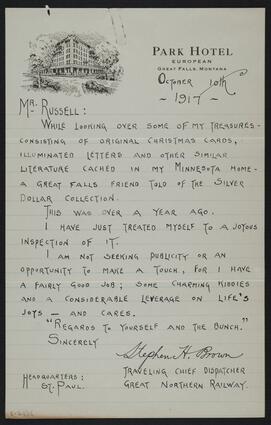 PARK HOTEL
EUROPEAN
GREAT FALLS, MONTANA
OCTOBER 10th
- 1917 -
MR. RUSSELL:
WHILE LOOKING OVER SOME OF MY TREASURES-
CONSISTING OF ORIGINAL CHRISTMAS CARDS,
ILLUMINATED LETTERS AND OTHER SIMILAR
LITERATURE CACHED IN MY MINNESOTA HOME-
A GREAT FALLS FRIEND TOLD OF THE SILVER
DOLLAR COLLECTION.
THIS WAS OVER A YEAR AGO.
I HAVE JUST TREATED MYSELF TO A JOYOUS
INSPECTION OF IT.
I AM NOT SEEKING PUBLICITY OR AN
OPPORTUNITY TO MAKE A TOUCH, FOR I HAVE
A FAIRLY GOOD JOB; SOME CHARMING KIDDIES
AND A CONSIDERABLE LEVERAGE ON LIFE'S
JOYS - AND CARES.
"REGARDS TO YOURSELF AND THE BUNCH."
SINCERELY
Stephen H. Brown
TRAVELING CHIEF DISPATCHER
GREAT NORTHERN RAILWAY.
HEADQUARTERS:
ST. PAUL.